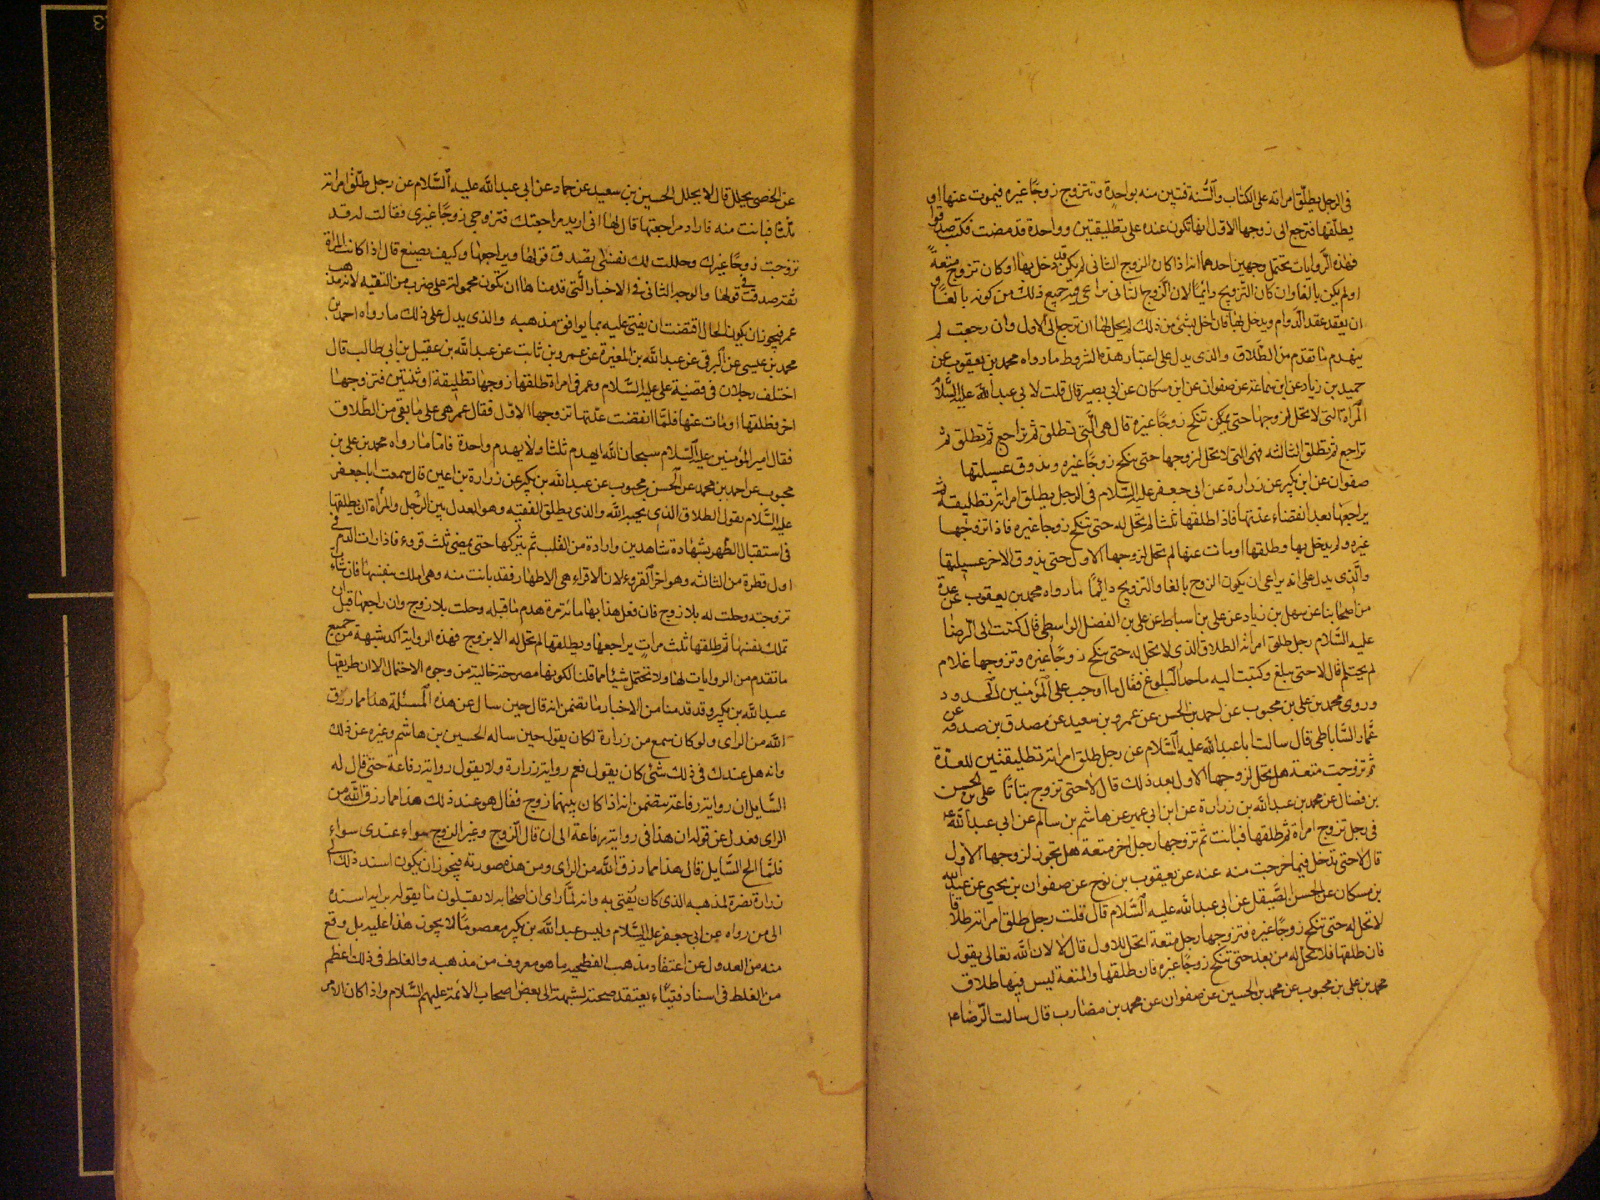 في الرجل يطلّق امراته على الكتاب والسّنه فتبين منه بواحدة وتتزوج زوجًا غيره فيموت عنها او
يطلّقها فترجع الى زوجها الاول انها تكون عنده على تطليقتين وواحدة قد مضت فكتب صدقوا
فهذه الروايات تحتمل وجهين احدهما انه اذا كان الزوج الثاني لم يكن قد دخل بها او كان تزوج متعةً
او لم يكن بالغا وان كان التزويج دائمًا لان الزوج الثاني يراعى فيه جميع ذلك من كونه بالغًا و
ان يعقد عقد الدوام ويدخل بها فان اخل بشئ من ذلك لم يحل لها ان ترجع الى الاول وان رجعت لم
ينهدم ما تقدم من الطلاق والذى يدل على اعتبار هذه الشروط ما رواه محمد بن يعقوب عن
حميد بن زياد عن ابن سماعة عن صفوان عن ابن مسكان عن ابى بصير قال قلت لابى عبد الله عليه السّلام
المرأة التى لا تحل لزوجها حتى تنكح زوجًا غيره قال هى التى تطلق ثم تراجع ثم تطلق ثم
تراجع ثم تطلق الثالثه فهى التى لا تحل لزوجها حتى تنكح زوجًا غيره ويذوق عسيلتها
صفوان عن ابن بكير عن زرارة عن ابى جعفر عليه السّلام فى الرجل يطلق امراته تطليقة ثم
يراجعها بعد انقضاء عدتها فاذا طلقها ثلثا لم تحل له حتى تنكح زوجا غيره فاذا تزوجها
غيره ولم يدخل بها وطلقها او مات عنها لم تحل لزوجها الاول حتى يذوق الاخر عسيلتها
والّذى يدل على انه يراعى ان يكون الزوج بالغا والتزويج دائمًا ما رواه محمد بن يعقوب عن عدة
من اصحابنا عن سهل بن زياد عن على بن اسباط عن على بن الفضل الواسطى قال كتبت الى الرضا
عليه السّلام رجل طلق امراته الطلاق الذى لا تحل له حتى تنكح زوجًا غيره وتزوجها غلام
لم يحتلم قال لا حتى يبلغ وكتبت اليه ما حد البلوغ فقال ما اوجب على المؤمنين الحدود
وروى محمد بن على بن محبوب عن احمد بن الحسن عن عمرو بن سعيد عن مصدق بن صدقه عن
عمار الساباطى قال سالت ابا عبد الله عليه السّلام عن رجل طلق امراته تطليقتين للعدة
ثم تزوجت متعة هل تحل لزوجها الاول بعد ذلك قال لا حتى تزوج بتاتًا على بن الحسن
بن فضال عن محمد بن عبد الله بن زرارة عن ابن ابى عمير عن هاشم بن سالم عن ابى عبد الله ع
فى رجل تزوج امراة ثم طلقها فبانت ثم تزوجها رجل اخر متعة هل تجوز لزوجها الاول
قال لا حتى تدخل فيما خرجت منه عنه عن يعقوب بن نوح عن صفوان بن يحيى عن عبد الله
بن مسكان عن الحسن الصّيقل عن ابى عبد الله عليه السّلام قال قلت رجل طلق امراته طلاقا
لا تحل له حتى تنكح زوجًا غيره فتزوجها رجل متعة اتحل للاول قال لا لان الله تعالى يقول
فان طلقها فلا تحل له من بعد حتى تنكح زوجًا غيره فان طلقها والمتعة ليس فيها طلاق
محمد بن على بن محبوب عن محمد بن الحسين عن صفوان عن محمد بن مضارب قال سالت الرّضا ع
عن الخصى يحلل قال لا يحلل الحسين بن سعيد عن حماد عن ابى عبد الله عليه السّلام عن رجل طلّق امراته
ثلثا فبانت منه فاراد مراجعتها قال لها انى اريد مراجعتك فتزوجى زوجًا غيرى فقالت له قد
تزوجت زوجًا غيرك وحللت لك نفسى ايصدق قولها ويراجعها وكيف يصنع قال اذا كانت المراة
ثقة صدقت فى قولها والوجه الثانى فى الاخبار الّتى قدمناها ان تكون محمولة على ضرب من التقيه لانه مذهب
عمر فيجوز ان يكون الحال اقتضت ان يفتى عليه بما يوافق مذهبه والذى يدل على ذلك ما رواه احمد بن
محمد بن عيسى عن البرقى عن عبد الله بن المغيرة عن عمرو بن ثابت عن عبد الله بن عقيل بن ابى طالب قال
اختلف رجلان فى قضية على عليه السّلام وعمر فى امراة طلقها زوجها تطليقة او ثنتين فتزوجها
اخر فطلقها او مات عنها فلمّا انقضت عدّتها تزوجها الاوّل فقال عمر هى على ما بقى من الطّلاق
فقال امير المؤمنين عليه السّلام سبحان الله ايهدم ثلثا ولا يهدم واحدة فاما ما رواه محمد بن على بن
محبوب عن احمد بن محمد عن الحسن بن محبوب عن عبد الله بن بكير عن زرارة بن اعين قال سمعت ابا جعفر
عليه السّلام يقول الطلاق الذى يحبه الله والذى يطلق الفقيه وهو العدل بين الرّجل والمرأة ان يطلقها
فى استقبال الطّهر بشهادة شاهدين وارادة من القلب ثم يتركها حتى يمضى ثلث قروء فاذا رات الدم فى
اول قطرة من الثالثه وهو اخر القروء لان الاقراء هى الاطهار فقد بانت منه وهى املك بنفسها فان شاءت
تزوجته وحلت له بلا زوج فان فعل هذا بها مائة مرة هدم ما قبله وحلت بلا زوج وان راجعها قبل ان
تملك نفسها ثم طلقها ثلث مرات يراجعها ويطلقها لم تحل له الا بزوج فهذه الرواية اكد شبهة من جميع
ما تقدم من الروايات لها ولا تحتمل شيئا مما قلنا لكونها مصرحة خالية من وجوه الاحتمال الا ان طريقها
عبد الله بن بكير وقد قدمنا من الاخبار ما تضمن انه قال حين سال عن هذه المسئلة هذا مما رزق
الله من الراى ولو كان سمع من زرارة لكان يقول حين ساله الحسين بن هاشم وغيره عن ذلك
وانه هل عندك فى ذلك شئ كان يقول نعم رواية زرارة ولا يقول رواية رفاعة حتى قال له
السّايل ان رواية رفاعة تتضمن انه اذا كان بينهما زوج فقال هو عند ذلك هذا مما رزق الله من
الراى فعدل عن قوله ان هذا فى رواية رفاعة الى ان قال الزوج وغير الزوج سواء عندى سواء
فلمّا الح السّايل قال هذا مما رزق الله من الراى ومن هذه صورته فيجوز ان يكون اسند ذلك الى
زرارة نصرة لمذهبه الذى كان يفتى به وانه لمّا راى ان اصحابه لا يقبلون ما يقوله برايه اسنده
الى من رواه عن ابى جعفر عليه السّلام وليس عبد الله بن بكير معصومًا لا يجوز هذا عليه بل وقع
منه من العدول عن اعتقاد مذهب الفطحيه ما هو معروف من مذهبه والغلط فى ذلك اعظم
من الغلط فى اسناد فتيًا يعتقد صحته لشبهة الى بعض اصحاب الائمة عليهم السّلام واذا كان الامر